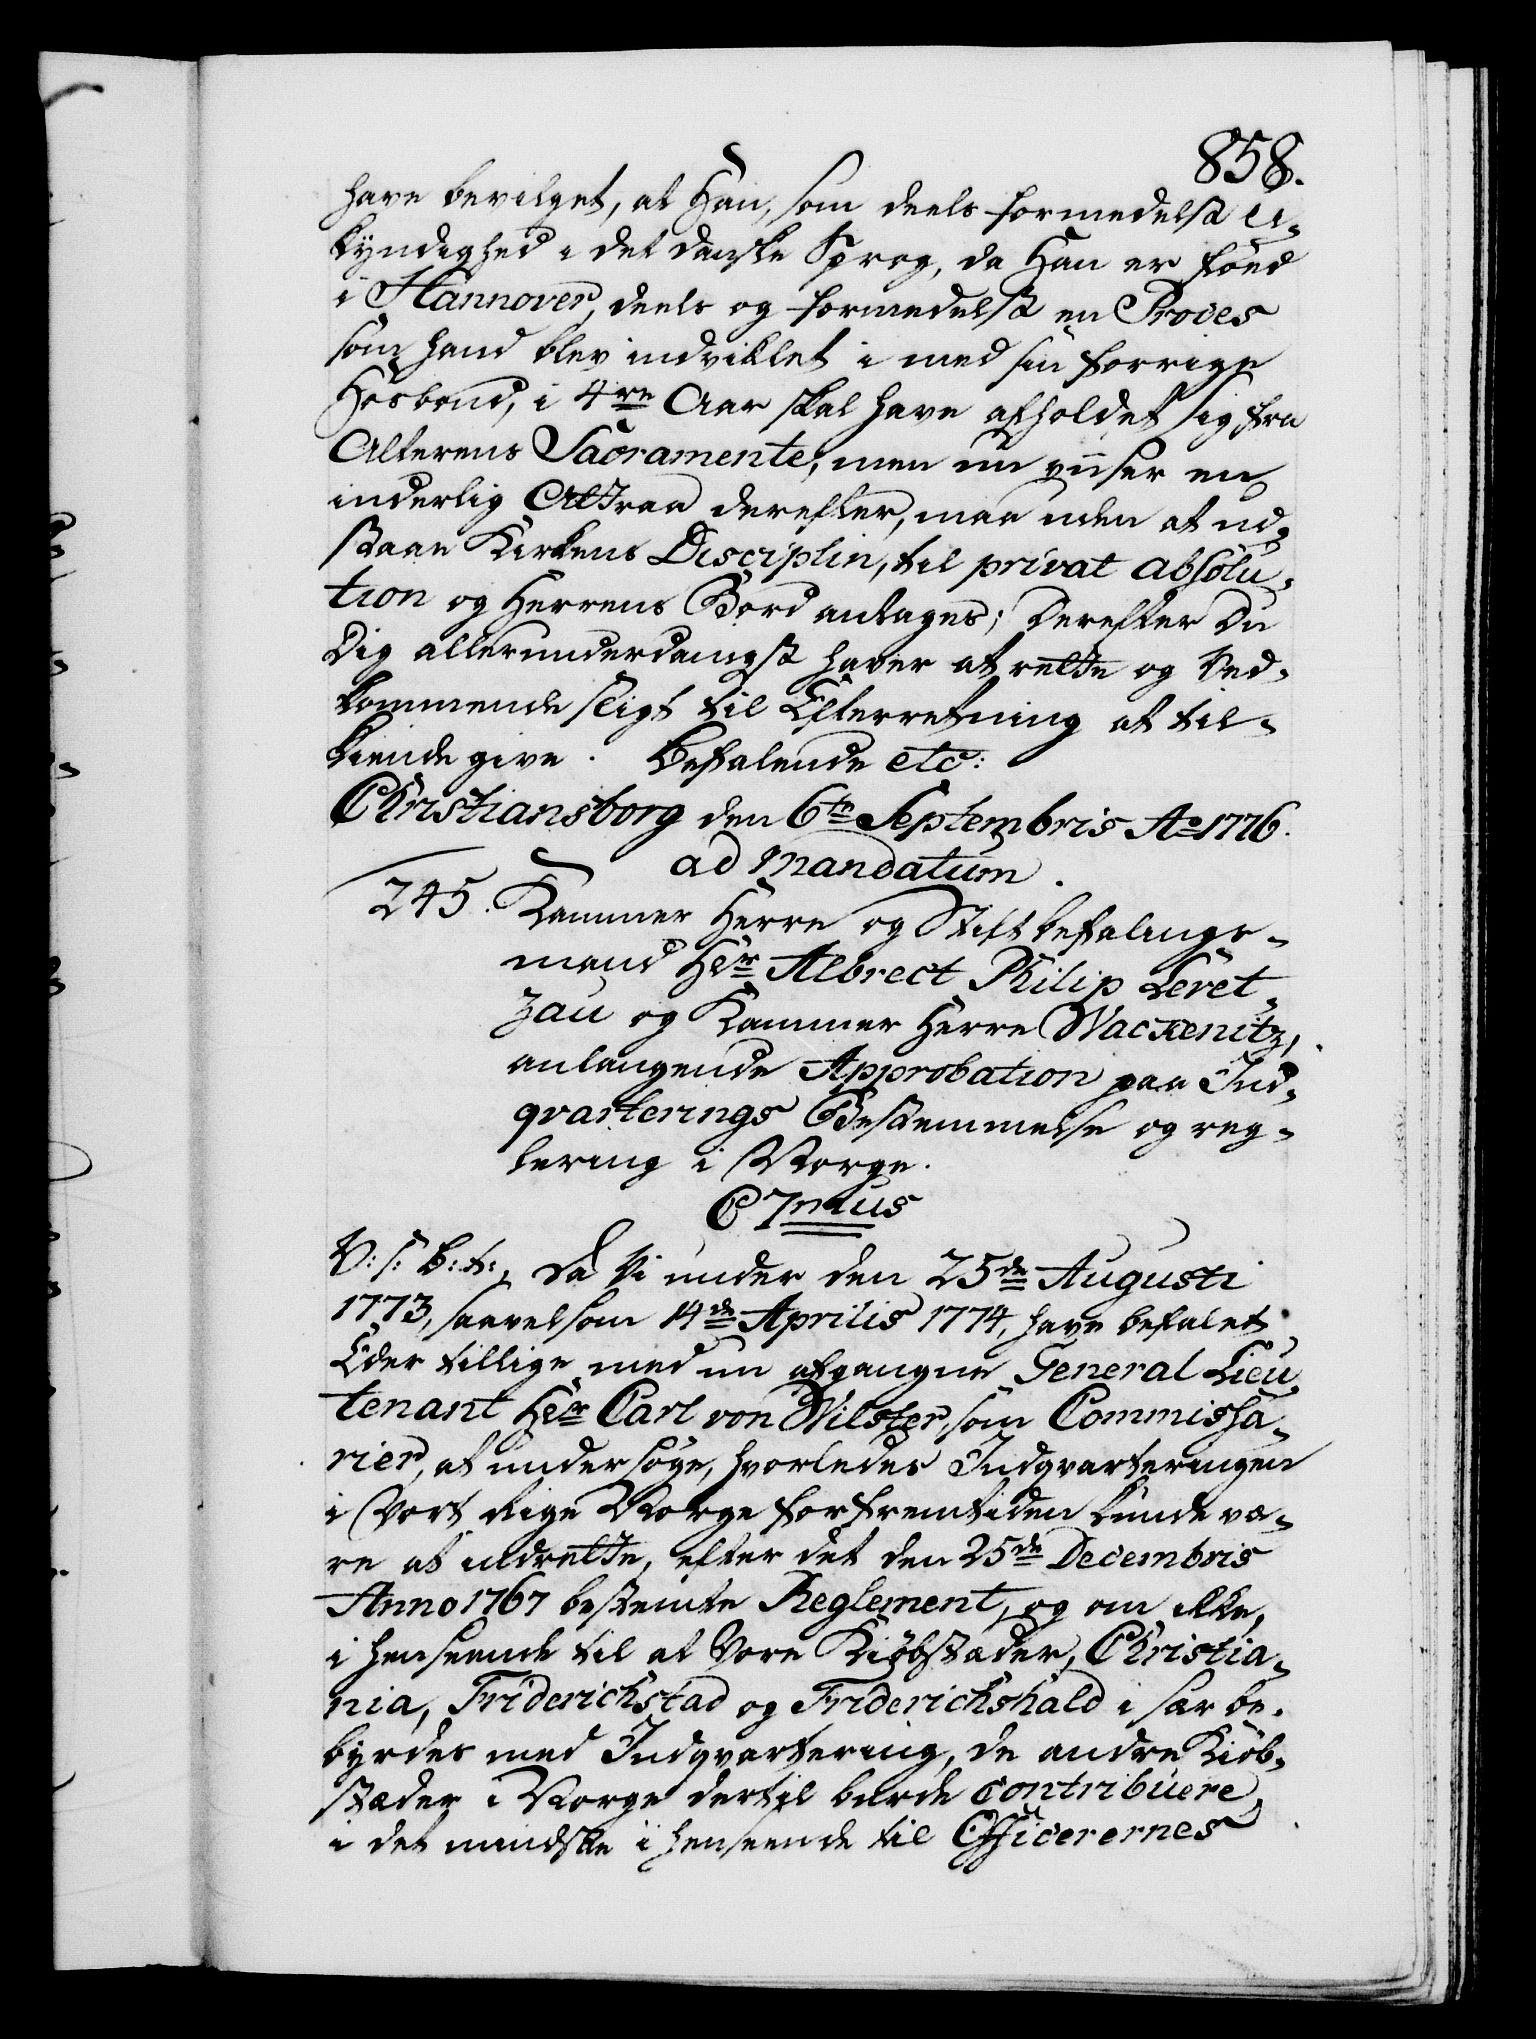 858.
have bevilget, at Han, som deels formedelst U-
kyndighed i det danske Sprog, da Han er föed
i Hannover, deels og formedelst en Proces
som hand blev indviklet i med sin forrige
Hosbond, i 4re Aar skal have afholdet sig fra
Alterens Sacramente, men nu viiser en
inderlig Attraa derefter, maa uden at ud-
staae Kirkens Disciplin, til privat absolu-
tion og Herrens Bord antages; Derefter Du
Dig allerunderdanigst haver at rette og Ved-
kommende sligt til Efterretning at til-
kiende give. Befalende etc:
Christiansborg den 6te Septembris Ao 1776.
ad mandatum.
245. Kammer Herre og Stiftbefalings-
mand Hr Albrect Philip Levet-
zau og Kammer Herre Wackenitz,
anlangende Approbation paa Ind-
qvarterings Bestemmelse og reg-
lering i Norge.
C 7mus
V: S: B: t:, Da Vi under den 25de Augusti
1773, saavelsom 14de Aprilis 1774, have befalet
Eder tillige med nu afgangne General Lieu-
tenant Hr Carl von Wilster, som Commissa-
rier, at undersøge, hvorledes Indqvarteringen
i Vort Rige Norge for fremtiden kunde væ-
re at indrette, efter det den 25de Decembris
Anno 1767 bestemte Reglement, og om ikke,
i henseende til at Vore Kiøbstæder, Christia-
nia, Friderichstad og Friderichshald i sær be-
byrdes med Indqvartering, de andre Kiøb-
stæder i Norge dertil burde contribuere
i det mindste i henseende til Officerernes